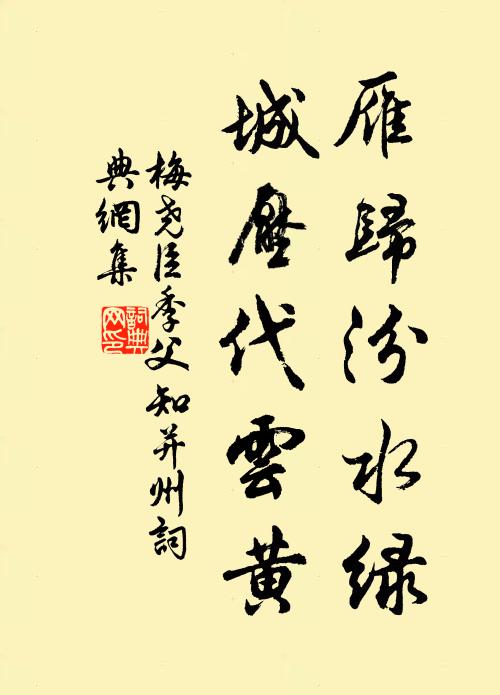 雁歸汾水綠
城壓代雲黃
梅堯臣季父知并州詞
典網集
詞典
网印